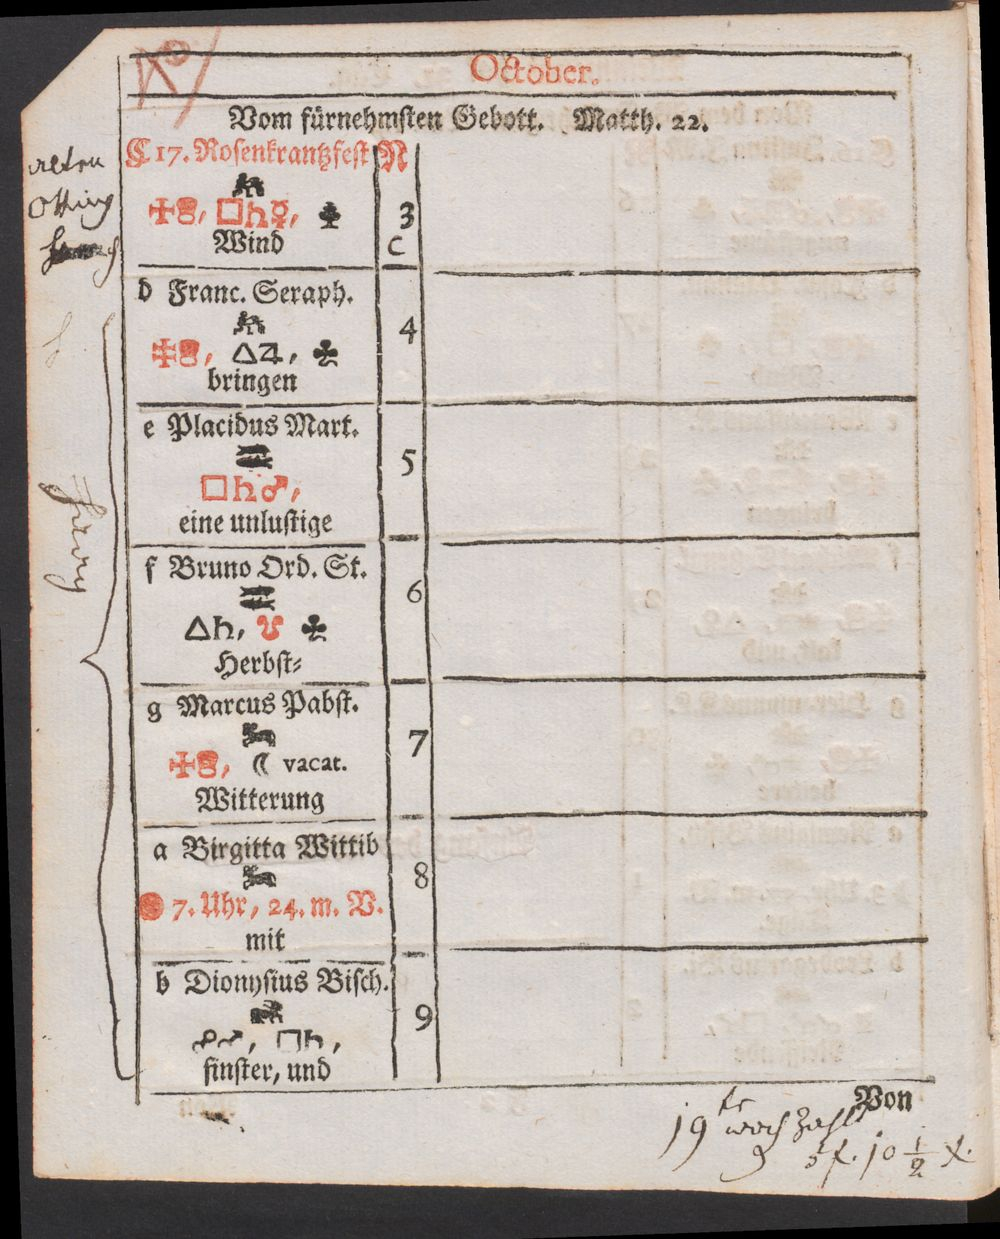 October.
Vom fürnehmsten Gebott. Matth. 22.
C 17. Rosenkrantzfest N
☩, □♄☿, 3
Wind C
d Franc. Seraph.
△♃, ♣ 4
bringen
e Placidus Mart.
□♄♂, 5
eine unlustige
f Bruno Ord. St.
△♄, ♣ 6
Herbst⸗
g Marcus Pabst.
☾ vacat. 7
Witterung
a Birgitta Wittib
7. Uhr, 24. m. V. 8
mit
b Dionysius Bisch.
☍♂, □♄, 9
finster, und
Von
19te woch zahlt
3 f. 10 1/2 x.